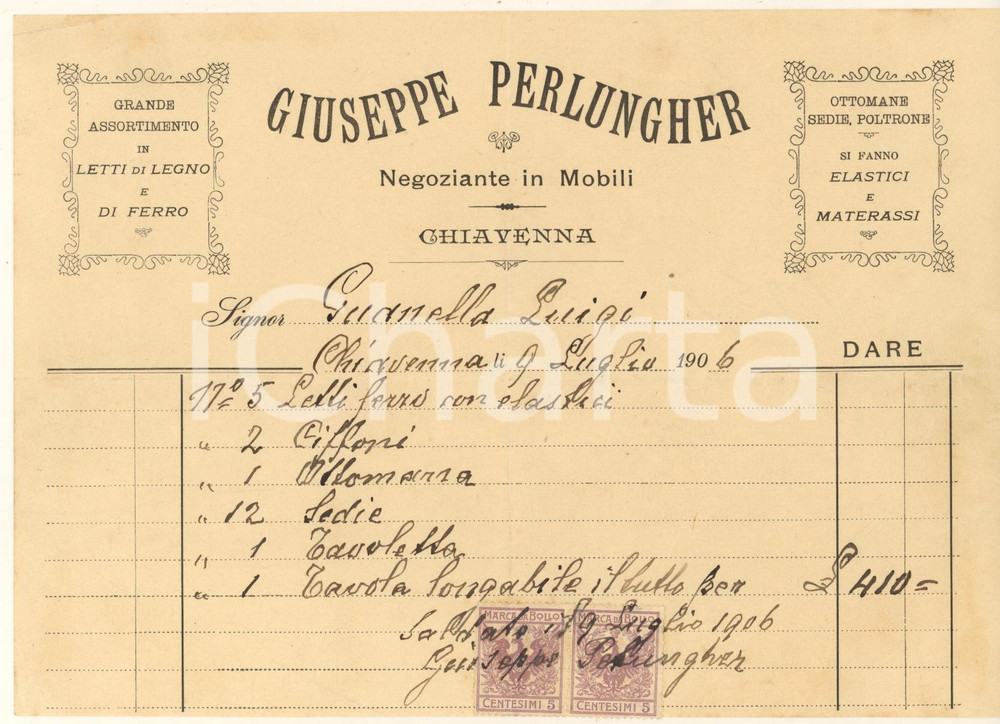 GRANDE
ASSORTIMENTO
IN
LETTI DI LEGNO
E
DI FERRO
GIUSEPPE PERLUNGHER
Negoziante in Mobili
CHIAVENNA
OTTOMANE
SEDIE, POLTRONE
SI FANNO
ELASTICI
E
MATERASSI
Signor Guanella Luigi
Chiavenna li 9 Luglio 1906
DARE
N° 5 Letti ferro con elastici
" 2 Ciffoni
" 1 Ottomana
" 12 Sedie
" 1 Tavoletta
" 1 Tavola longabile il tutto per £ 410=
Saldato il 9 Luglio 1906
Giuseppe Perlungher
MARCA DA BOLLO MARCA DA BOLLO
CENTESIMI 5 CENTESIMI 5
iCharta